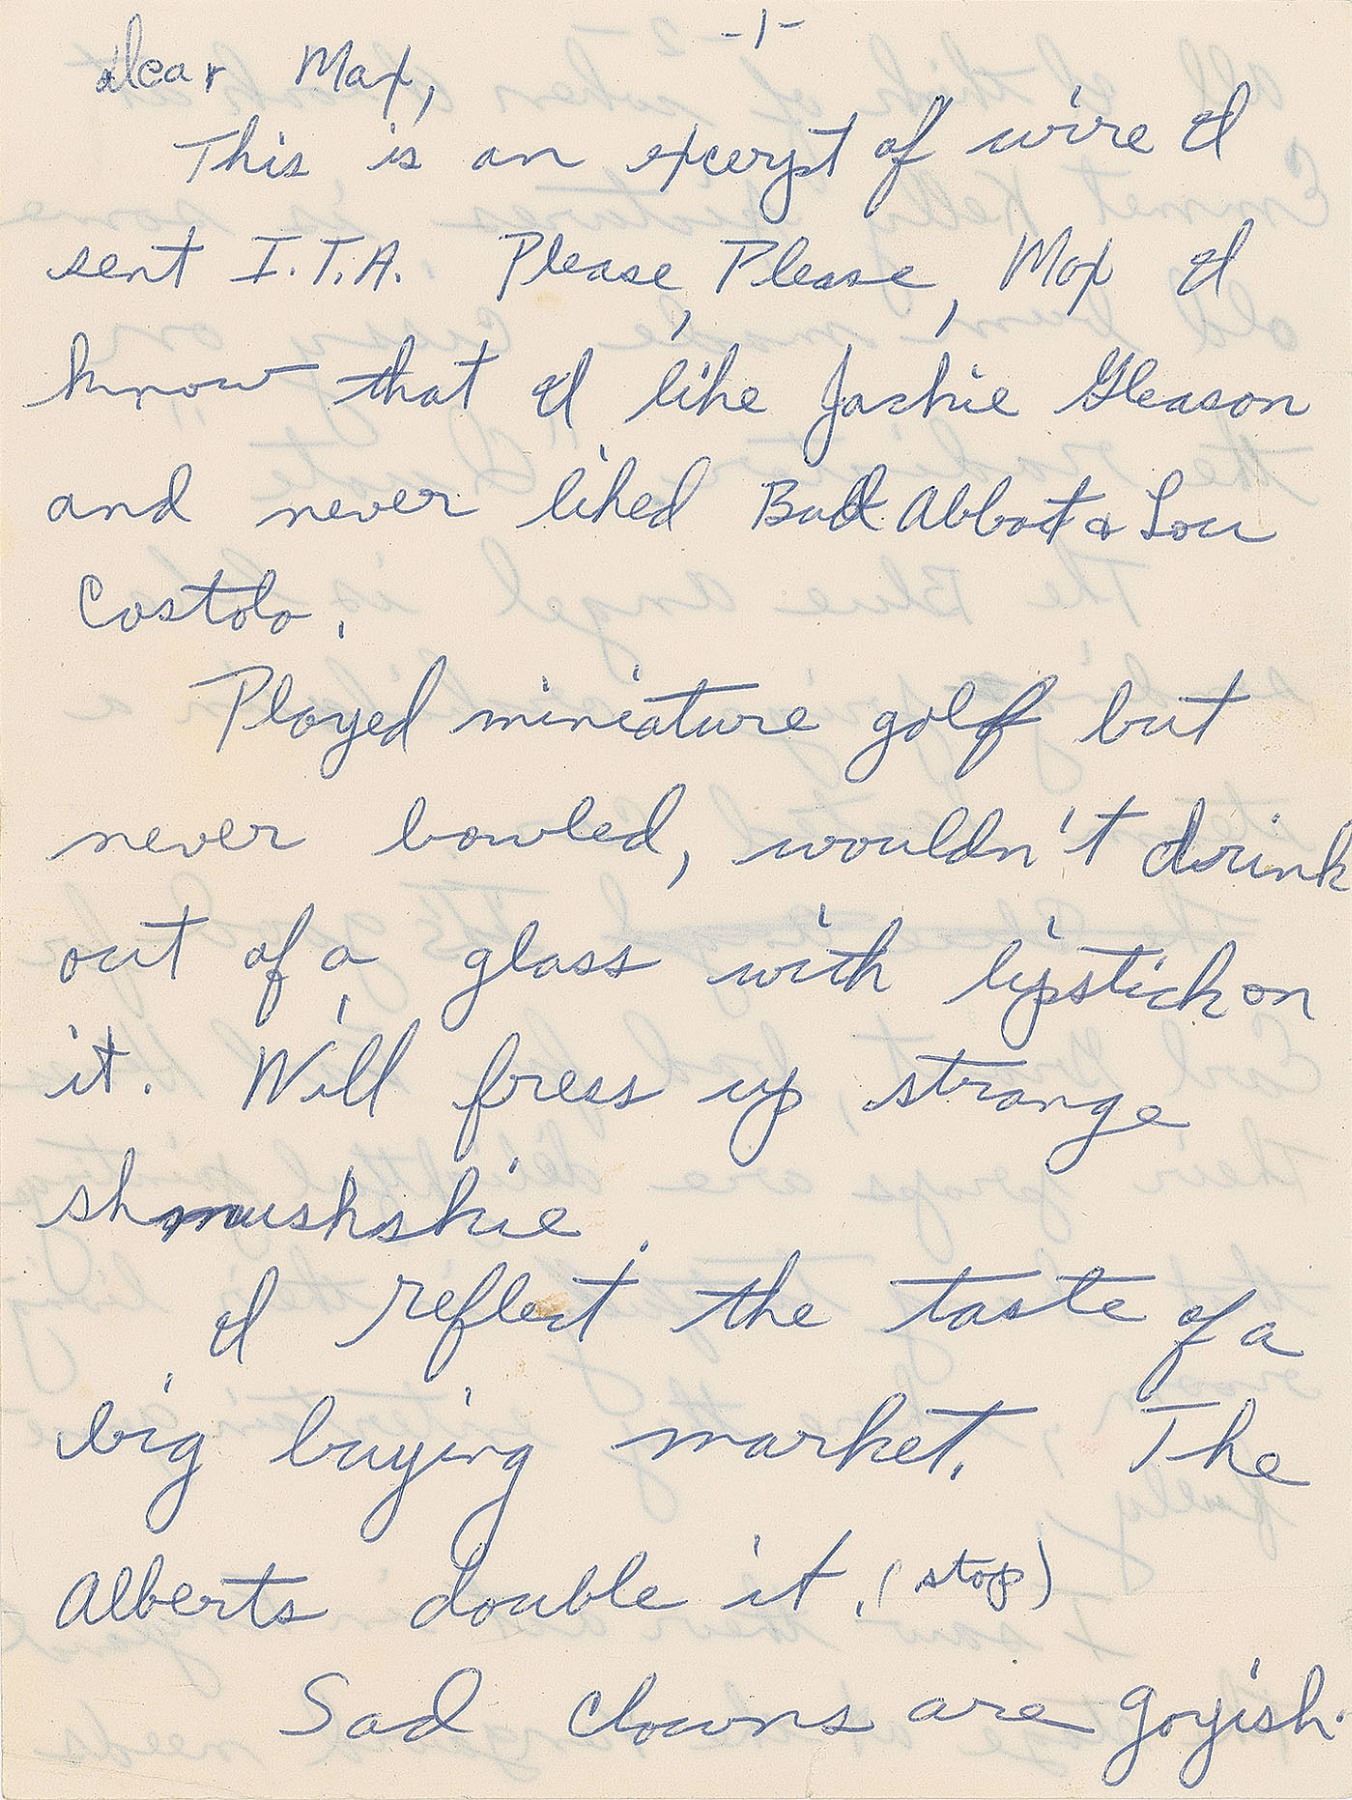 -1-
Dear Max,
This is an excerpt of wire I
sent I.T.A. Please, Please, Max I
know that I like Jackie Gleason
and never liked Bud Abbot & Lou
Costolo.
Played miniature golf but
never bowled, wouldn't drink
out of a glass with lipstick on
it. Will fress up strange
shmushskie.
I reflect the taste of a
big buying market. The
Alberts double it. (stop)
Sad clowns are goyish.